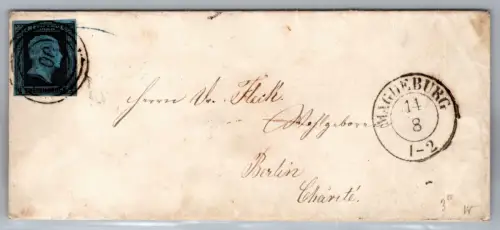 Herrn Dr. Fleck
Wohlgeboren
Berlin
Charité.
MAGDEBURG
14
8
1-2
3